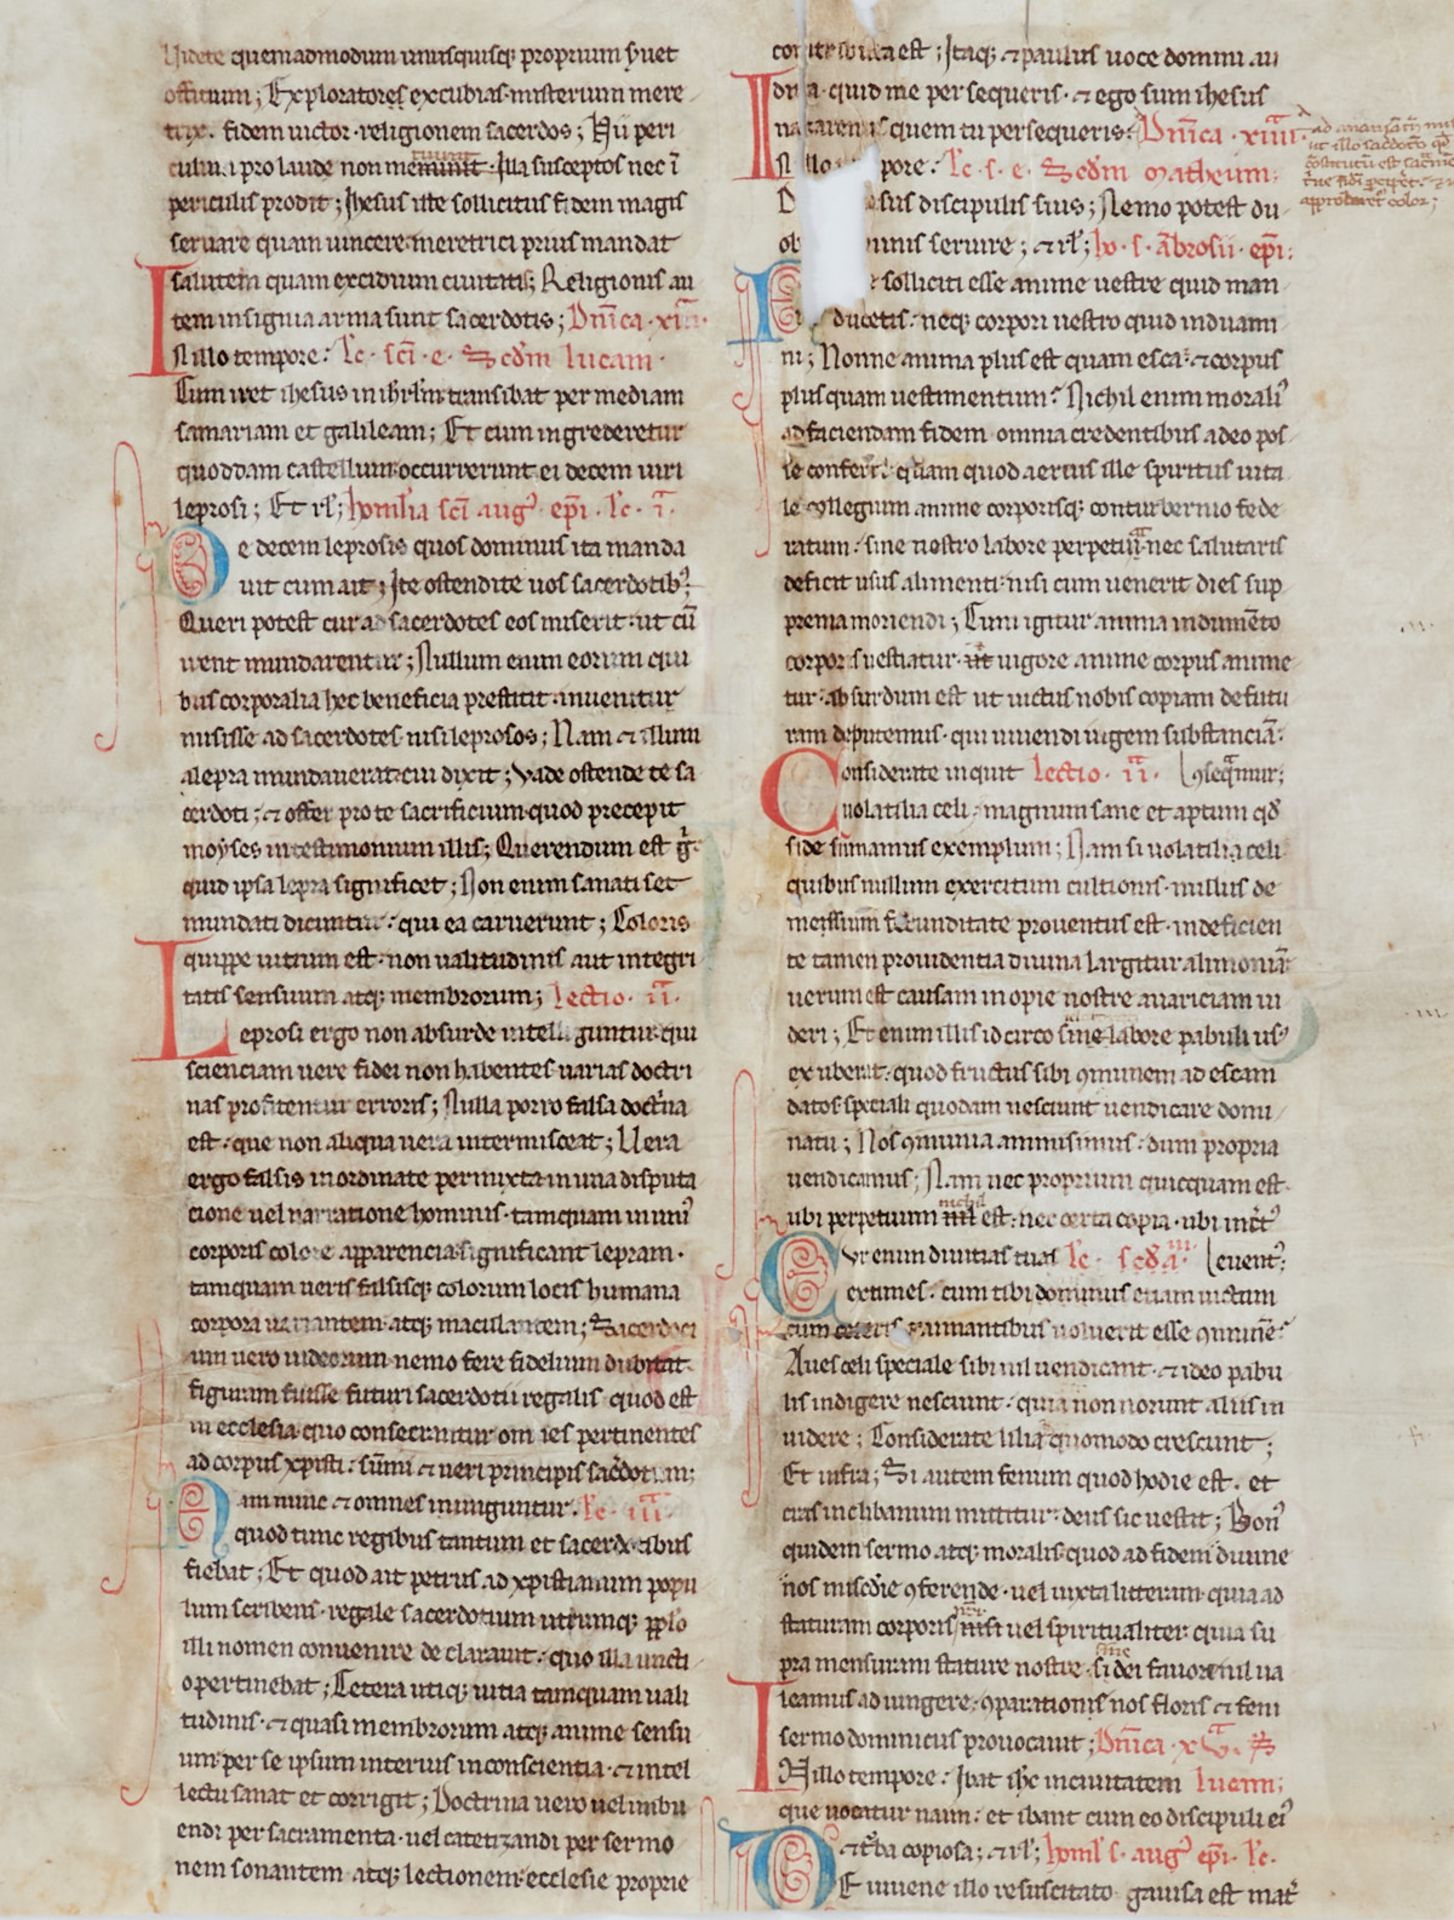 Uidete quemadmodum unusquisq; proprium s̓uet
officium ; Exploratores excubias· misterium mere
trix. fidem uictor· religionem sacerdos ; Hii peri
culum pro laude non metuunt· Illa susceptos nec ī
periculis prodit ; Ihesus ille sollicitus fidem magis
seruare quam uincere· meretrici prius mandat
salutem quam excidium ciuitatis; Religionis au
tem insignia arma sunt sacerdotis ; Dnīca ·xiii·
In illo tempore: Lc· scī· e· Scdm lucam·
Cum iret ihesus in ihrlm· transibat per mediam
samariam et galileam ; Et cum ingrederetur
quoddam castellum occurrerunt ei decem uiri
leprosi ; Et rł; homilia scī aug⁹ epī· lc· i·
De decem leprosis quos dominus ita munda
uit cum ait ; Ite ostendite uos sacerdotib⁹;
Queri potest cur ad sacerdotes eos miserit· ut cū
irent mundarentur ; Nullum enim eorum qui
bus corporalia hec beneficia prestitit· inuenitur
misisse ad sacerdotes· nisi leprosos ; Nam ⁊ illum
a lepra mundauerat· cui dixit ; Vade ostende te sa
cerdoti ; ⁊ offer pro te sacrificium· quod precepit
moyses in testimonium illis; Querendum est g̊
quid ipsa lepra significet ; Non enim sanati set
mundati dicuntur· qui ea caruerunt ; Coloris
quippe uitium est· non ualitudinis aut integri
tatis sensuum atq; membrorum; Lectio· ii·
Leprosi ergo non absurde intelliguntur· qui
scienciam uere fidei non habentes· uarias doctri
nas profitentur erroris; Nulla porro falsa doct̓na
est· que non aliqua uera intermisceat ; Uera
ergo falsis inordinate permixta in una disputa
cione uel narratione hominis· tamquam in uni⁹
corporis colore apparencia· significant lepram·
tamquam ueris falsisq; colorum locis humana
corpora uariantem· atq; maculantem; Sacerdoci
um uero iudeorum· nemo fere fidelium dubitat·
figuram fuisse futuri sacerdotii regalis· quod est
in ecclesia· quo consecrantur omnes pertinentes
ad corpus xpisti· sūmi ⁊ ueri principis sac̓dotum;
Nam nunc ⁊ omnes inunguntur. Lc· iii·
quod tunc regibus tantum et sacerdotibus
fiebat ; Et quod ait petrus ad xpistianum popu
lum scribens· regale sacerdotium· utrumq; pp̄lo
illi nomen conuenire declarauit· quo illa uncti
o pertinebat ; Cetera utiq; uitia tamquam uali
tudinis· ⁊ quasi membrorum atq; anime sensu
um· per se ipsum interius in conscientia· ⁊ intel
lectu sanat et corrigit ; Doctrina uero uel imbu
endi per sacramenta· uel catetizandi per sermo
nem sonantem· atq; lectionem· ecclesie proprie
contributa est ; Itaq; ⁊ paulus uoce domini au
dita· quid me persequeris· ⁊ ego sum ihesus
nazarenus quem tu persequeris: Dnīca ·xiiii·
In illo tempore: Lc· s· e· Scdm Matheum;
D sus discipulis suis ; Nemo potest du
ob minis seruire ; ⁊ rł; ho· s· ābrosii· epī;
e solliciti esse anime uestre quid man
ducetis· neq; corpori uestro quid induami
ni ; Nonne anima plus est quam esca· ⁊ corpus
plusquam uestimentum? Nichil enim morali⁹
ad faciendam fidem omnia credentibus a deo pos
se conferri· quam quod aerius ille spiritus uita
le collegium anime corporisq; contubernio fede
ratum· sine nostro labore perpetuat· nec salutaris
deficit usus alimenti· nisi cum uenerit dies sup
prema moriendi ; Cum igitur anima indumēto
corporis uestiatur· ut uigore anime corpus anime
tur· absurdum est ut uictus nobis copiam defutu
ram deputemus· qui uiuendi iugem substanciā·
Considerate inquit Lectio· ii· ɔseqᷓmur;
uolatilia celi· magnum sane et aptum qđ
fide sumamus exemplum ; Nam si uolatilia celi
quibus nullum exercitum cultionis· nullus de
messium fecunditate prouentus est· indeficien
te tamen prouidentia diuina largitur alimoniā·
uerum est causam inopie nostre auariciam ui
deri ; Etenim illis idcirco sine labore pabuli us⁹
exuberat· quod fructus sibi ɔmunem ad escam
datos· speciali quodam nesciunt uendicare domi
natu ; Nos ɔmunia amisimus· dum propria
uendicamus ; Nam nec proprium quicquam est·
ubi perpetuum nichil est· nec certa copia· ubi inc̓t⁹
Cur enim diuitias tuas Lc· scd'a· iii· euent⁹;
extimes· cum tibi dominus etiam uictum
cum ceteris animantibus uoluerit esse ɔmunē?
Aues celi speciale sibi nil uendicant· ⁊ ideo pabu
lis indigere nesciunt· quia non norunt aliis in
uidere ; Considerate lilia quomodo crescunt ;
Et infra; Si autem fenum quod hodie est· et
cras in clibanum mittitur· deus sic uestit ; Bon⁹
quidem sermo atq; moralis· quod ad fidem diuine
nos misc̓die ɔferende· uel iuxta litteram· quia ad
staturam corporis nr̄i uel spiritualiter· quia su
pra mensuram stature nostre· sine dei fauore nil ua
leamus adiungere· ɔparationis nos floris ⁊ feni
sermo dominicus prouocauit ; Dnīca ·xv· S
In illo tempore: Ibat ihc in ciuitatem lucam;
que uocatur naim· et ibant cum eo discipuli ei⁹
⁊ t̓ba copiosa; ⁊ rł; homł s· aug⁹ epī· lc·
DE iuuene illo resuscitato gauisa est mat̓
ut illo sacdoto qđ
ɔstitutū est
approbaret color;